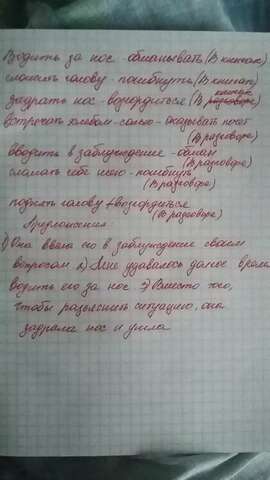 Водить за нос - обманывать (В книгах)
сломить голову - погибнуть (В книгах)
задрать нос - возгордиться (В книгах разговоре)
встречать хлебом-солью - оказывать почёт
(В разговоре)
вводить в заблуждение - обман
(В разговоре)
сломать себе шею - погибнуть
(В разговоре)
поднять голову - возгордиться
(В разговоре)
Предложения
1) Она ввела его в заблуждение своим
вопросом 2) Мне удавалось долгое время
водить его за нос 3) Вместо того,
чтобы разъяснить ситуацию, она
задрала нос и ушла